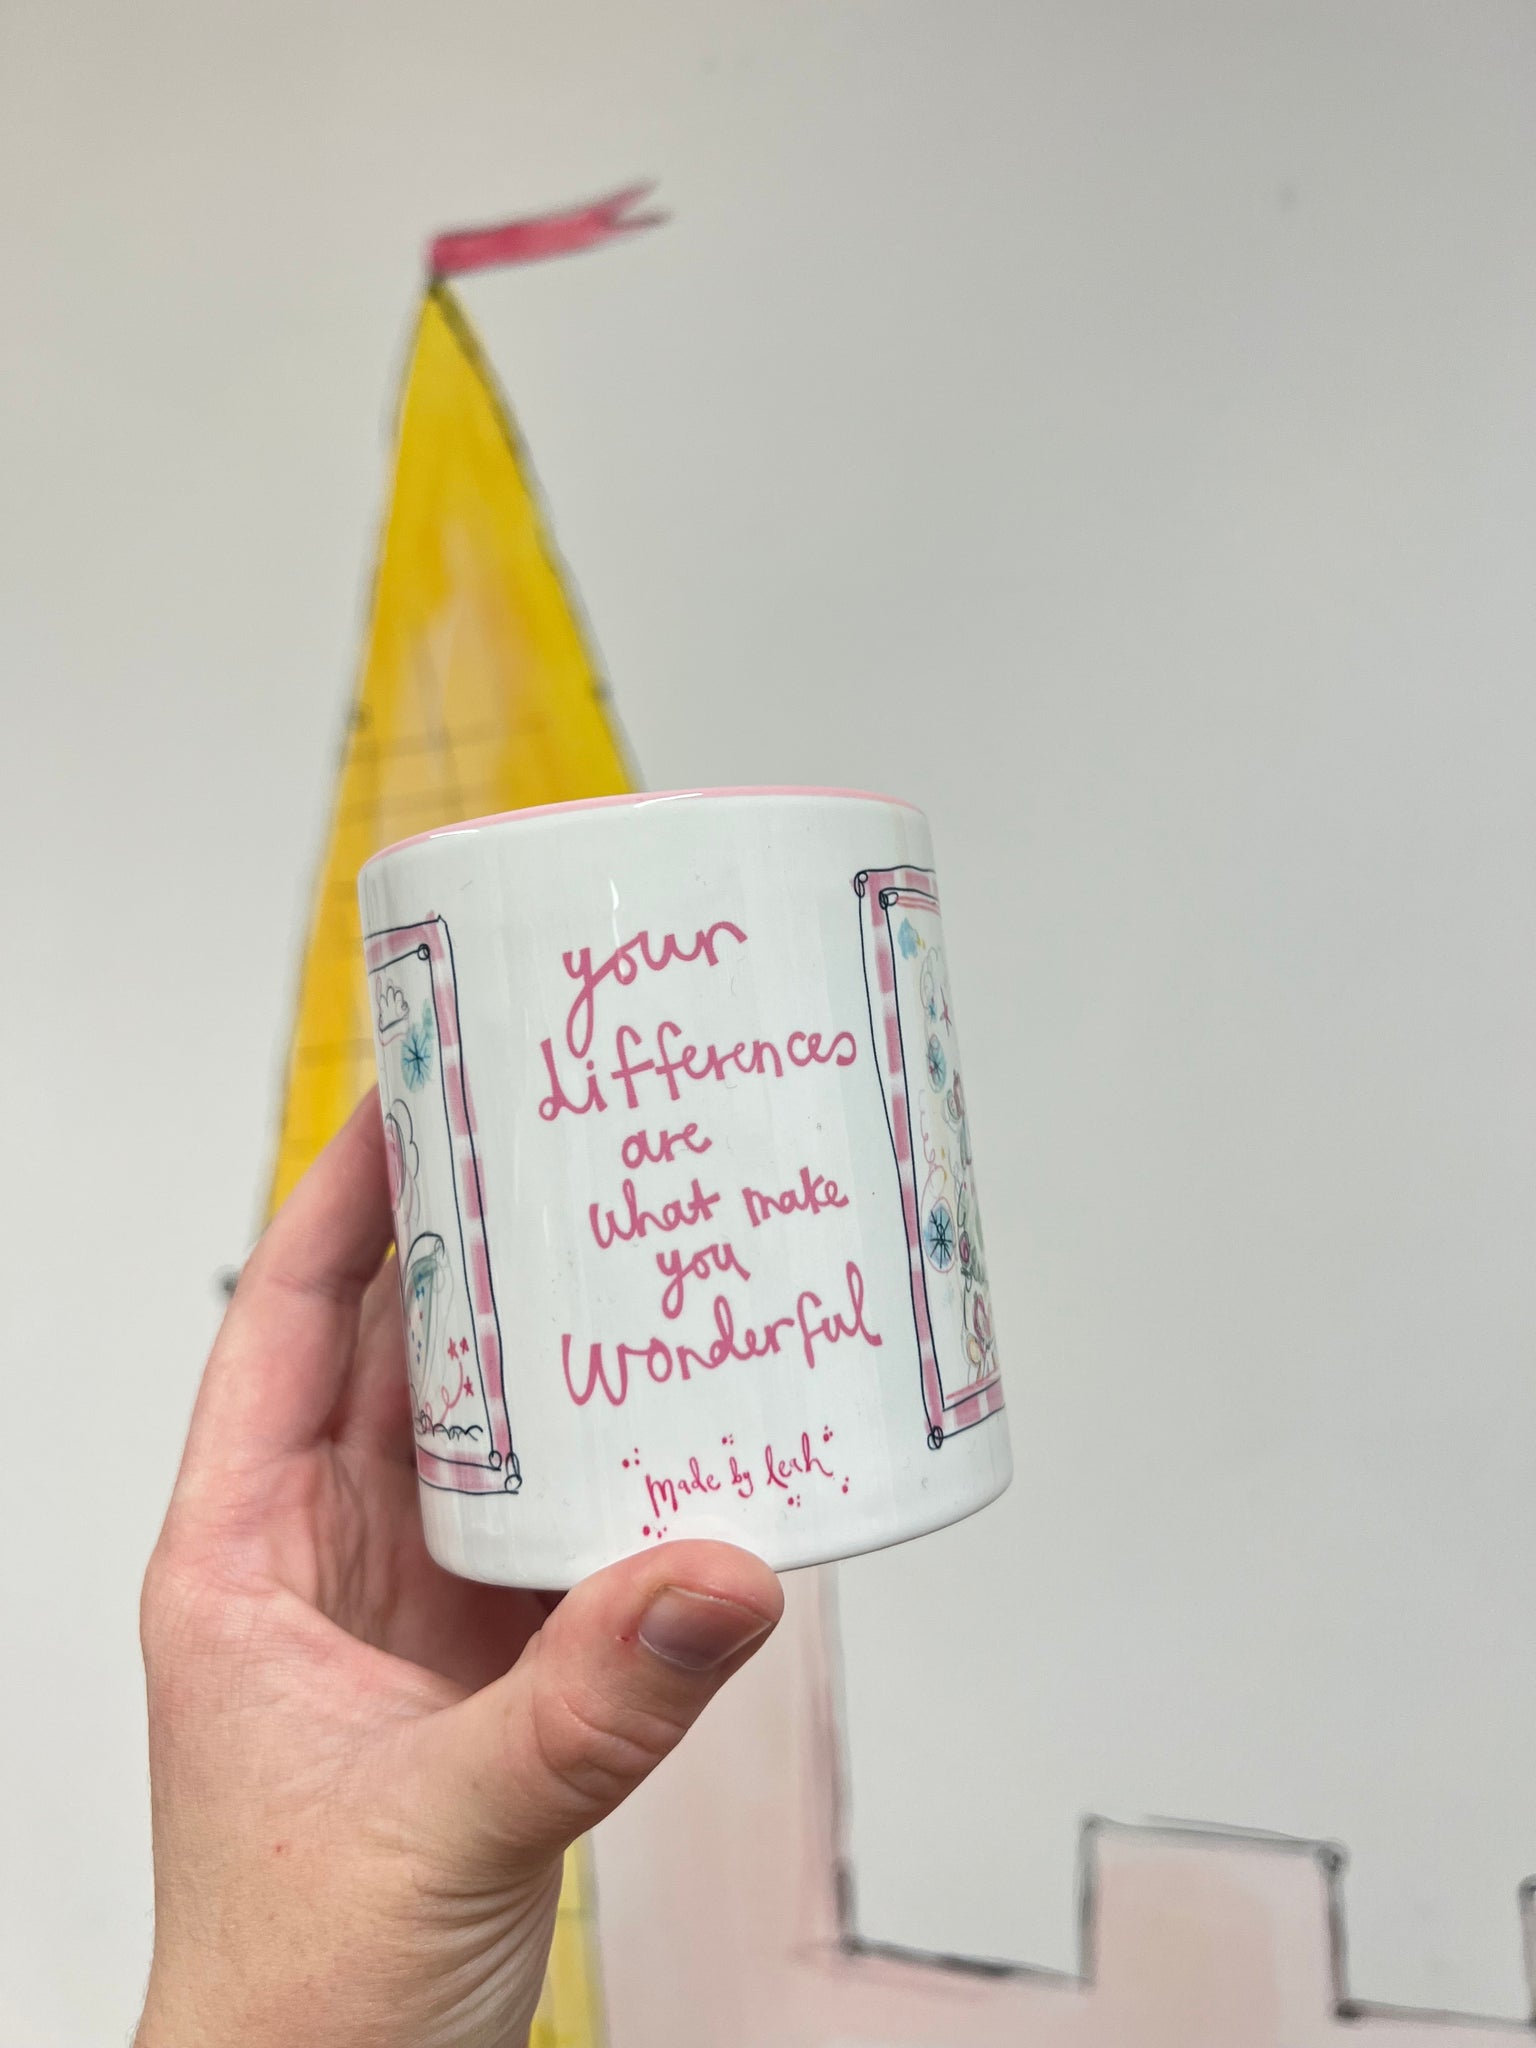 your
differences
are
what make
you
wonderful
made by leah